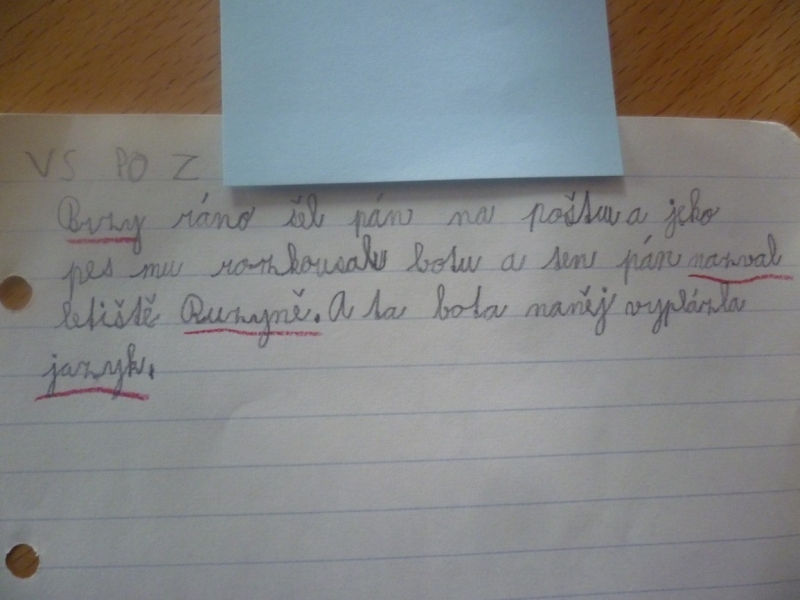 VS PO Z
Brzy ráno šel pán na poštu a jeho
pes mu rozkousal botu a ten pán nazval
letiště Ruzyně. A ta bota naněj vyplázla
jazyk.